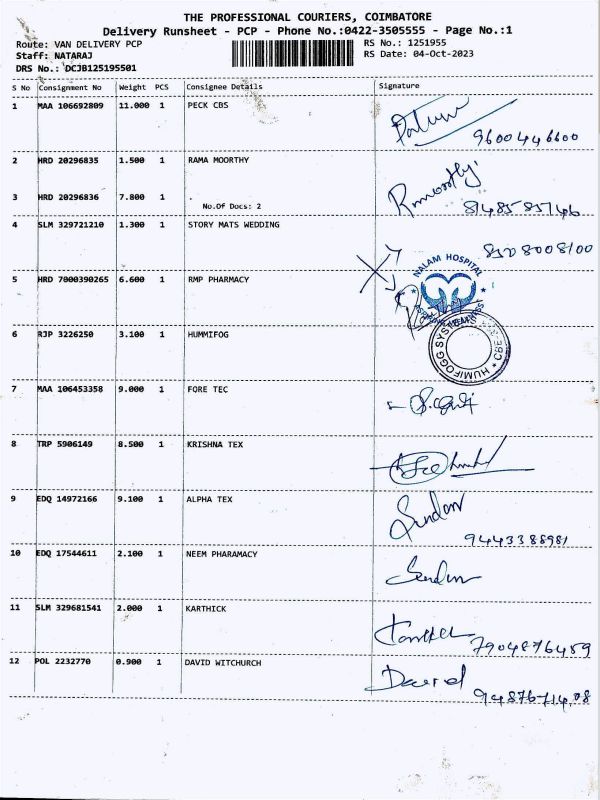 THE PROFESSIONAL COURIERS, COIMBATORE
Delivery Runsheet - PCP - Phone No.:0422-3505555 - Page No.:1
Route: VAN DELIVERY PCP RS No.: 1251955
Staff: NATARAJ RS Date: 04-Oct-2023
DRS No.: DCJB125195501
S No Consignment No Weight PCS Consignee Details Signature
1 MAA 106692809 11.000 1 PECK CBS
9600446600
2 HRD 20296835 1.500 1 RAMA MOORTHY
Rmoorthy
3 HRD 20296836 7.800 1
No.Of Docs: 2 8148583746
4 SLM 329721210 1.300 1 STORY MATS WEDDING
8508008100
NALAM HOSPITAL
5 HRD 7000390265 6.600 1 RMP PHARMACY
6 RJP 3226250 3.100 1 HUMMIFOG
HUMIFOGG SYSTEMS CBE
7 MAA 106453358 9.000 1 FORE TEC
8 TRP 5906149 8.500 1 KRISHNA TEX
9 EDQ 14972166 9.100 1 ALPHA TEX
9443388981
10 EDQ 17544611 2.100 1 NEEM PHARAMACY
11 SLM 329681541 2.000 1 KARTHICK
7904876459
12 POL 2232770 0.900 1 DAVID WITCHURCH
David
9487671408